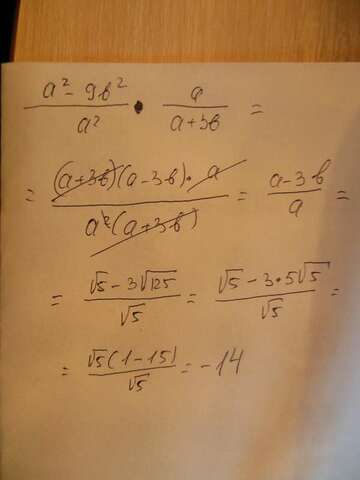 (a² - 9b²)/a² • a/(a+3b) =
= ((a+3b)(a-3b)•a)/(a²(a+3b)) = (a-3b)/a =
= (√5 - 3√125)/√5 = (√5 - 3•5√5)/√5 =
= √5(1-15)/√5 = -14